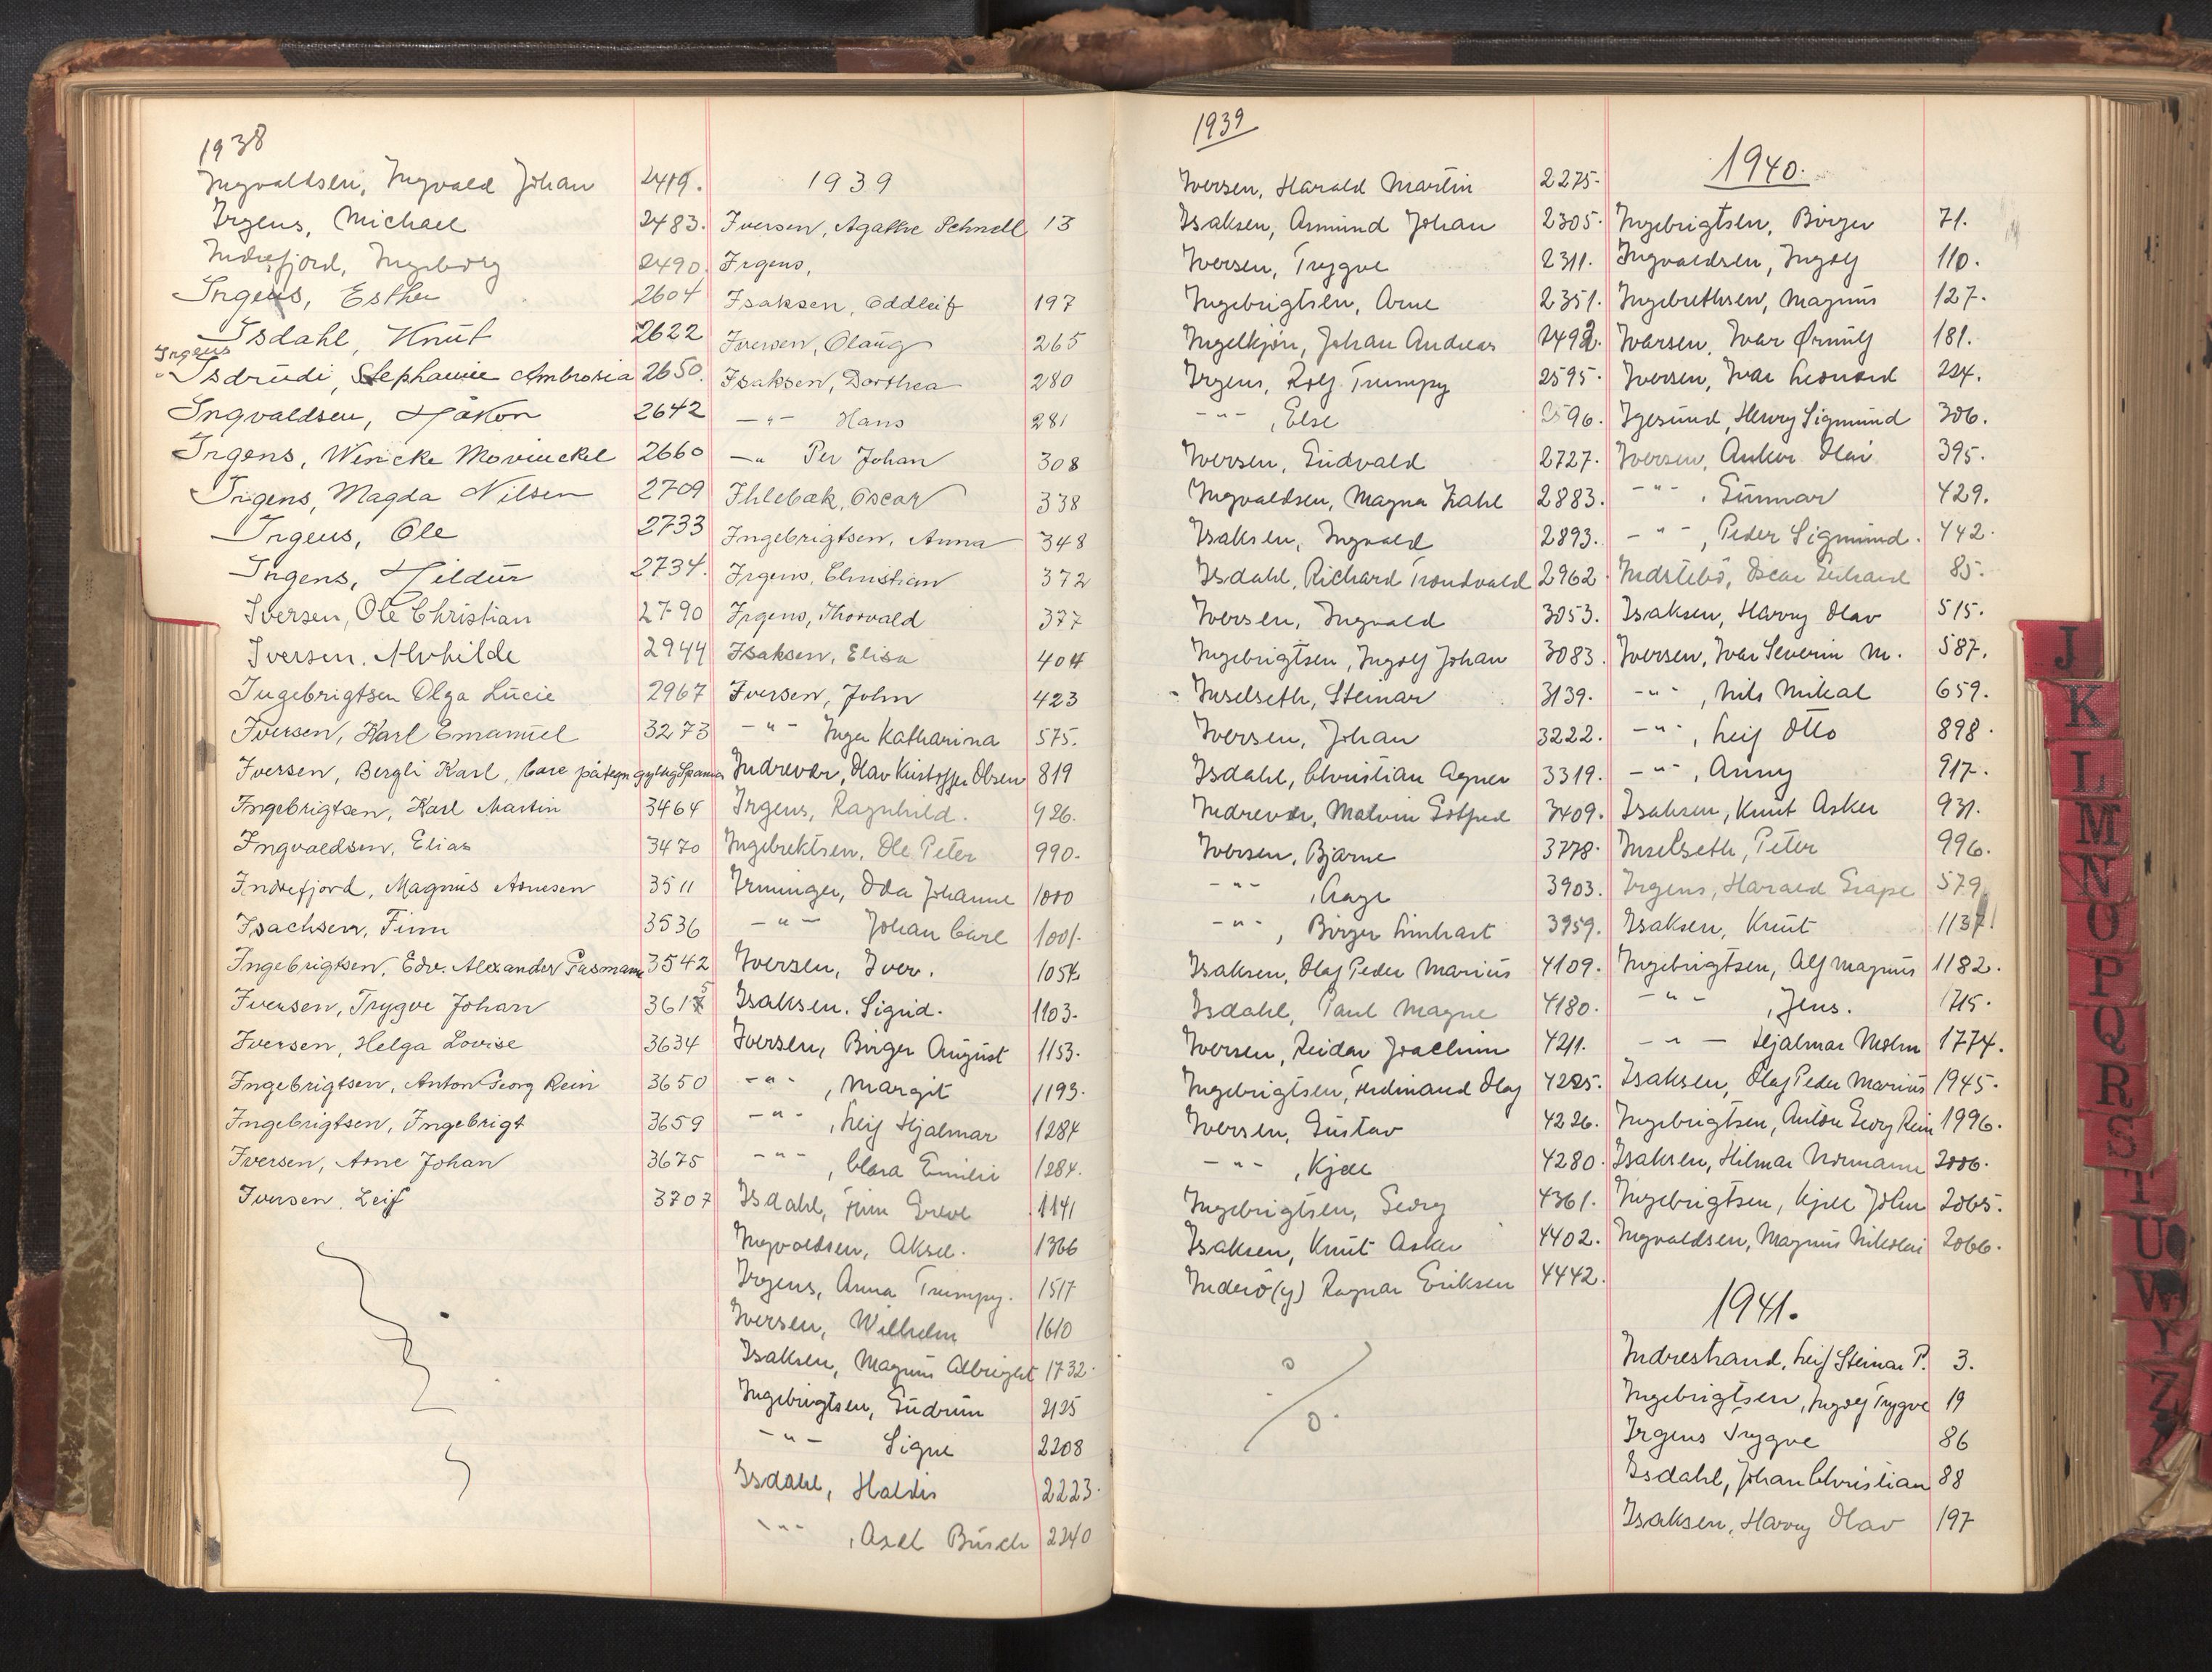 1938
Ingvaldsen, Ingvald Johan 2419.
Irgens, Michael 2483.
Indrefjord, Ingeborg 2490.
Irgens, Esther 2604
Isdahl, Knut 2622
Irgens
Isdrudi, Stephanie Ambrosia 2650.
Ingvaldsen, Håkon 2642
Irgens, Wencke Movinckel 2660
Irigens, Magda Nilsen 2709
Irgens, Ole 2733
Irgens, Hildur 2734.
Iversen, Ole Christian 2790
Iversen, Alvhilde 2944
Ingebrigtsen Olga Lucie 2967
Iversen, Karl Emanuel 3273
Iversen, Bergli Karl, bare påtegn gyldig Spania
Ingebrigtsen, Karl Martin 3464
Ingvaldsen, Elias 3470
Indrefjord, Magnus Arnesen 3511
Isachsen, Finn 3536
Ingebrigtsen, Edv. Alexander Gasmann 3542
Iversen, Trygve Johan 3615
Iversen, Helga Lovise 3634
Ingebrigtsen, Anton Georg Rein 3650
Ingebrigtsen, Ingebrigt 3659
Iversen, Arne Johan 3675
Iversen, Leif 3707
1939
Iversen, Agathe Schnell 13
Irgens,
Isaksen, Oddleif 197
Iversen, Olaug 265
Isaksen, Dorthea 280
-"- Hans 281
-"- Per Johan 308
Ihlebæk, Oscar 338
Ingebrigtsen, Anna 348
Irgens, Christian 372
Irgens, Thorvald 377
Isaksen, Elisa 404
Iversen, John 423
-"- Inga Katharina 575.
Indrevær, Olav Kristoffer Olsen 819
Irgens, Ragnhild. 926.
Ingebrektsen, Ole Peter 990.
Irminger, Oda Johanne 1000
-"- Johan Carl 1001.
Iversen, Iver. 1054
Isaksen, Sigrid. 1103.
Iversen, Birger August 1153.
-"-, Margit 1193.
-"-, Leif Hjalmar 1284
-"-, Clara Emilie 1284.
Isdahl, Finn Greve 1141
Ingvaldsen, Aksel. 1366
Irgens, Anna Trumpy. 1517
Iversen, Wilhelm 1610
Isaksen, Magnus Albright 1732.
Ingebrigtsen, Gudrun 2125
-"- Signe 2208
Isdahl, Haldis 2223.
-"-, Axel Busch 2240
1939
Iversen, Harald Martin 2275.
Isaksen, Asmund Johan 2305.
Iversen, Trygve 2311.
Ingebrigtsen, Arne 2351.
Ingelkjøn, Johan Andreas 2492.
Irgens, Rolf Trumpy 2595.
-"-, Else 2596.
Iversen, Gudvald 2727.
Ingvaldsen, Magna Zahl 2883.
Isaksen, Ingvald 2893.
Isdahl, Richard Trondvald 2962.
Iversen, Ingvald 3053.
Ingebrigtsen, Ingolf Johan 3083.
Inselseth, Steinar 3139.
Iversen, Johan 3222.
Isdahl, Christian Agner 3319.
Indrevær, Malvin Gotfred 3409.
Iversen, Bjarne 3778.
-"-, Aage 3903.
-"-, Birger Linhart 3959.
Isaksen, Olaf Peder Marius 4109.
Isdahl, Paul Magne 4180.
Iversen, Reidar Joachim 4211.
Ingebrigtsen, Ferdinand Olaf 4225.
Iversen, Gustav 4226.
-"-, Kjell 4280.
Ingebrigtsen, Georg 4361.
Isaksen, Knut Asker 4402.
Inderö(y) Ragnar Eriksen 4442.
1940.
Ingebrigtsen, Birger 71.
Ingvaldsen, Ingolf 110.
Ingebrethsen, Magnus 127.
Ivarsen, Ivar Ørnulf 181.
Iversen, Ivar Leonard 224.
Igesund, Henry Sigmund 306.
Iversen, Anker Olai 395.
-"-, Gunnar 429.
-"-, Peder Sigmund. 442.
Indrebö, Oscar Gerhard 85.
Isaksen, Harry Olav 515.
Iversen, Ivar Severin M. 587.
-"-, Nils Mikal 659.
-"-, Leif Otto 898.
-"-, Anny 917.
Isaksen, Knut Asker 931.
Inselseth, Peter 996.
Irgens, Harald Grape 579
Isaksen, Knut 1137
Ingebrigtsen, Alf Magnus 1182.
-"-, Jens. 1715.
-"- Hjalmar Mohn 1774.
Isaksen, Olaf Peder Marius 1945.
Ingebrigtsen, Anton Georg Rein 1996.
Isaksen, Hilmar Normann 2006.
Ingebrigtsen, Kjell John 2065.
Ingvaldsen, Magnus Nikolai 2066.
1941.
Indrestrand, Leif Steinar P. 3.
Ingebrigtsen, Ingolf Trygve 19
Irgens Trygve 86
Isdahl, Johan Christian 88
Isaksen, Harry Olav 197
J
K
L
M
N
O
P
Q
R
S
T
U
W
Y
Z